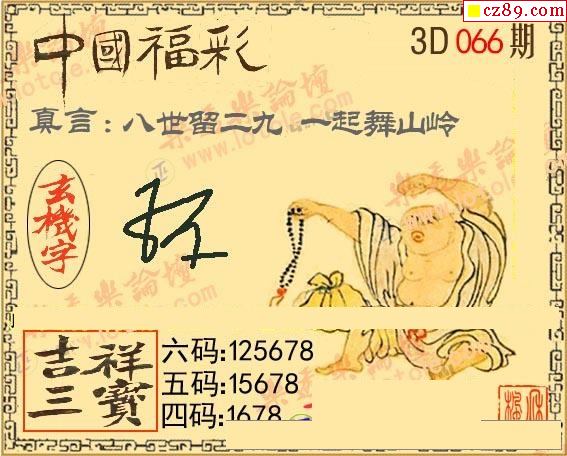 cz89.com
中國福彩
3D 066 期
真言：八世留二九 一起舞山岭
玄機字
吉祥三寶
六码:125678
五码:15678
四码:1678